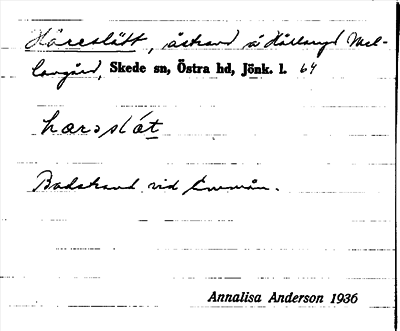 Håreslätt, åstrand å Hållaryd Mel-
langård, Skede sn, Östra hd, Jönk. l. 64
hærəslǽt
Badstrand vid Emmån.
Annalisa Anderson 1936